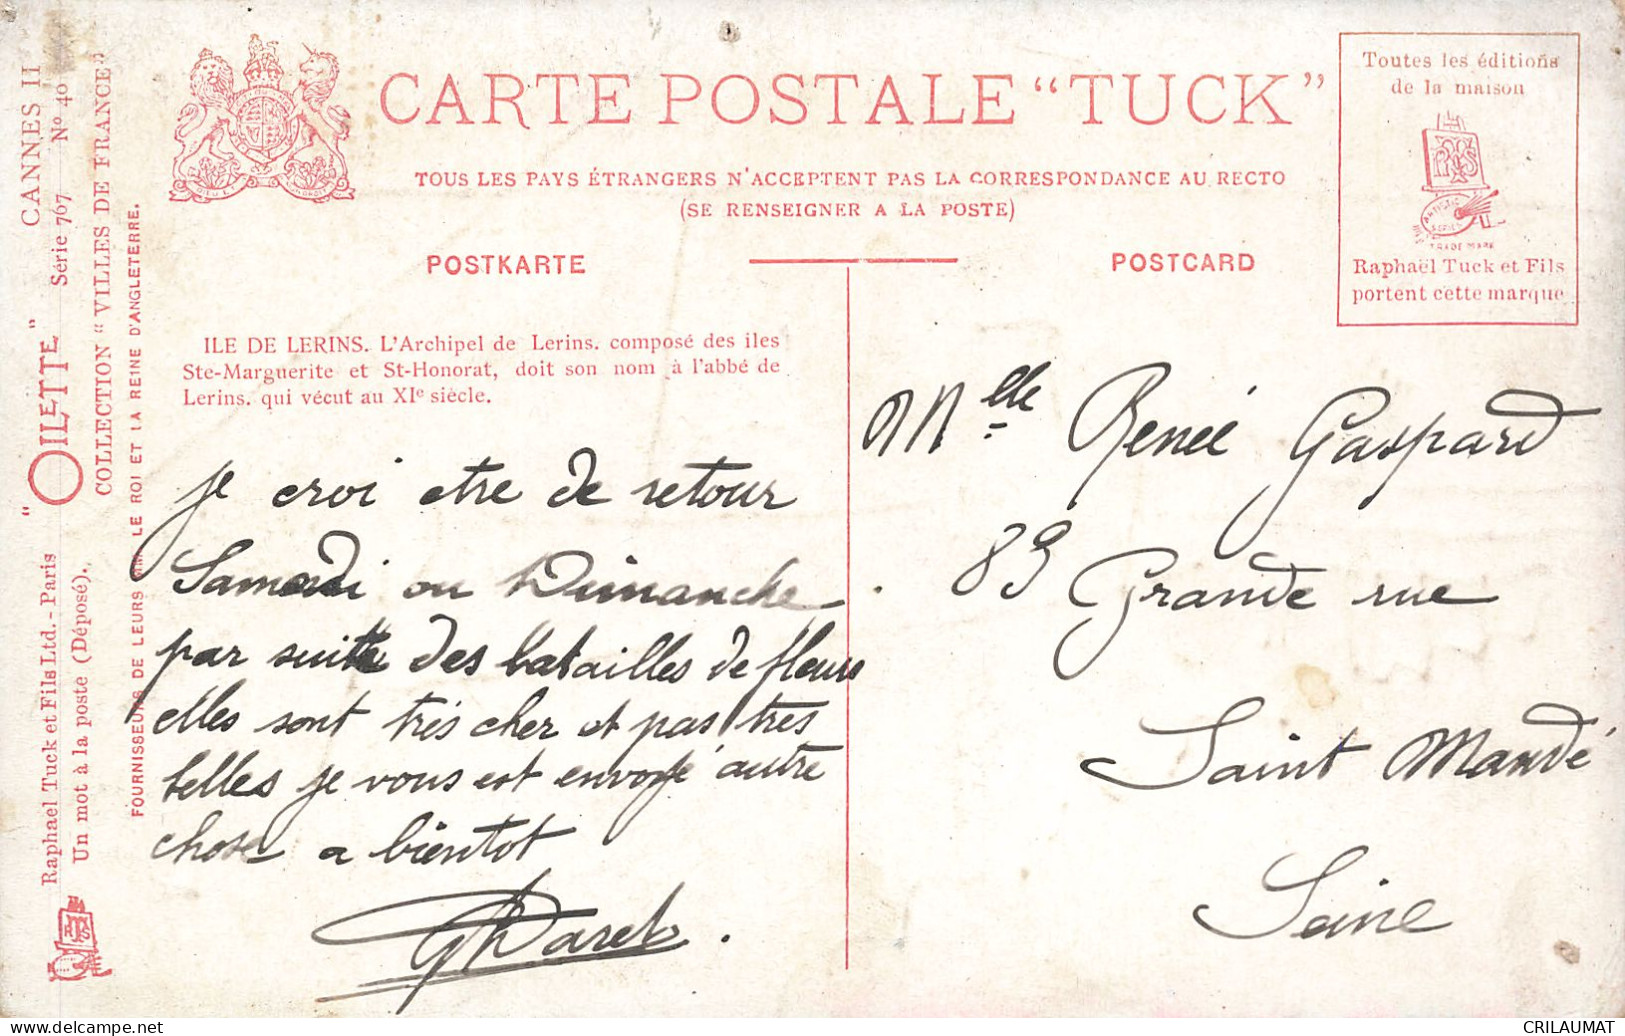 CARTE POSTALE “TUCK”
TOUS LES PAYS ÉTRANGERS N'ACCEPTENT PAS LA CORRESPONDANCE AU RECTO
(SE RENSEIGNER A LA POSTE)
POSTKARTE
POSTCARD
Toutes les éditions
de la maison
ARTISTIC
SERIES
TRADE MARK
Raphaël Tuck et Fils
portent cette marque
ILE DE LERINS. L'Archipel de Lerins. composé des iles
Ste-Marguerite et St-Honorat, doit son nom à l'abbé de
Lerins. qui vécut au XIe siècle.
je croi etre de retour
Samedi ou Dimanche
par suite des batailles de fleurs
elles sont très cher et pas très
belles je vous est envoyé autre
chose a bientot
Mlle Renée Gaspard
89 Grande rue
Saint Mandé
Seine
CANNES II
“OILETTE” Série 767 No 40
COLLECTION “VILLES DE FRANCE”
Raphael Tuck et Fils Ltd. - Paris
Un mot à la poste (Déposé).
FOURNISSEURS DE LEURS MM LE ROI ET LA REINE D'ANGLETERRE.
CRILAUMAT